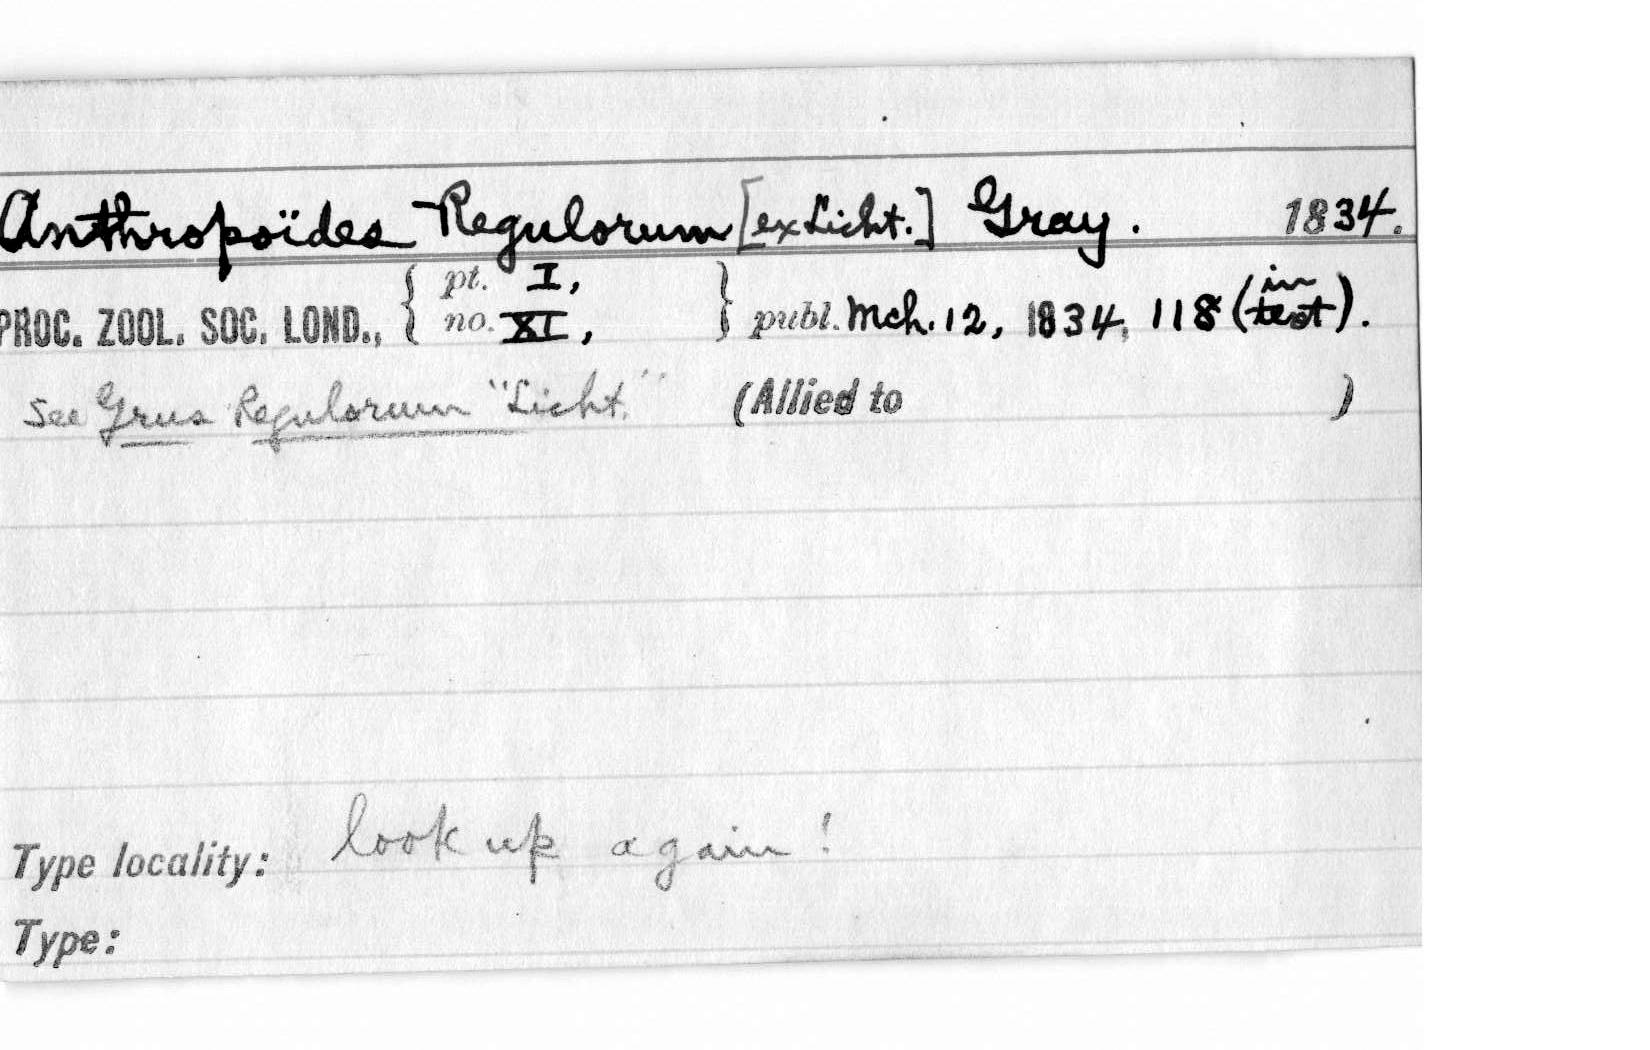 Anthropoïdes Regulorum [ex Licht.] Gray. 1834.
PROC. ZOOL. SOC. LOND., { pt. I, no. XI, } publ. Mch. 12, 1834, 118 (in text).
See Grus Regulorum "Licht." (Allied to )
Type locality: look up again!
Type: